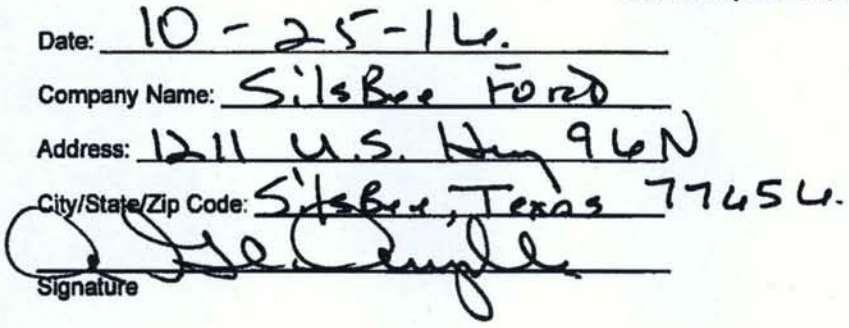 Date: 10-25-16.
Company Name: SilsBee Ford
Address: 1211 U.S. Hwy 96N
City/State/Zip Code: SilsBee, Texas 77656.
Signature